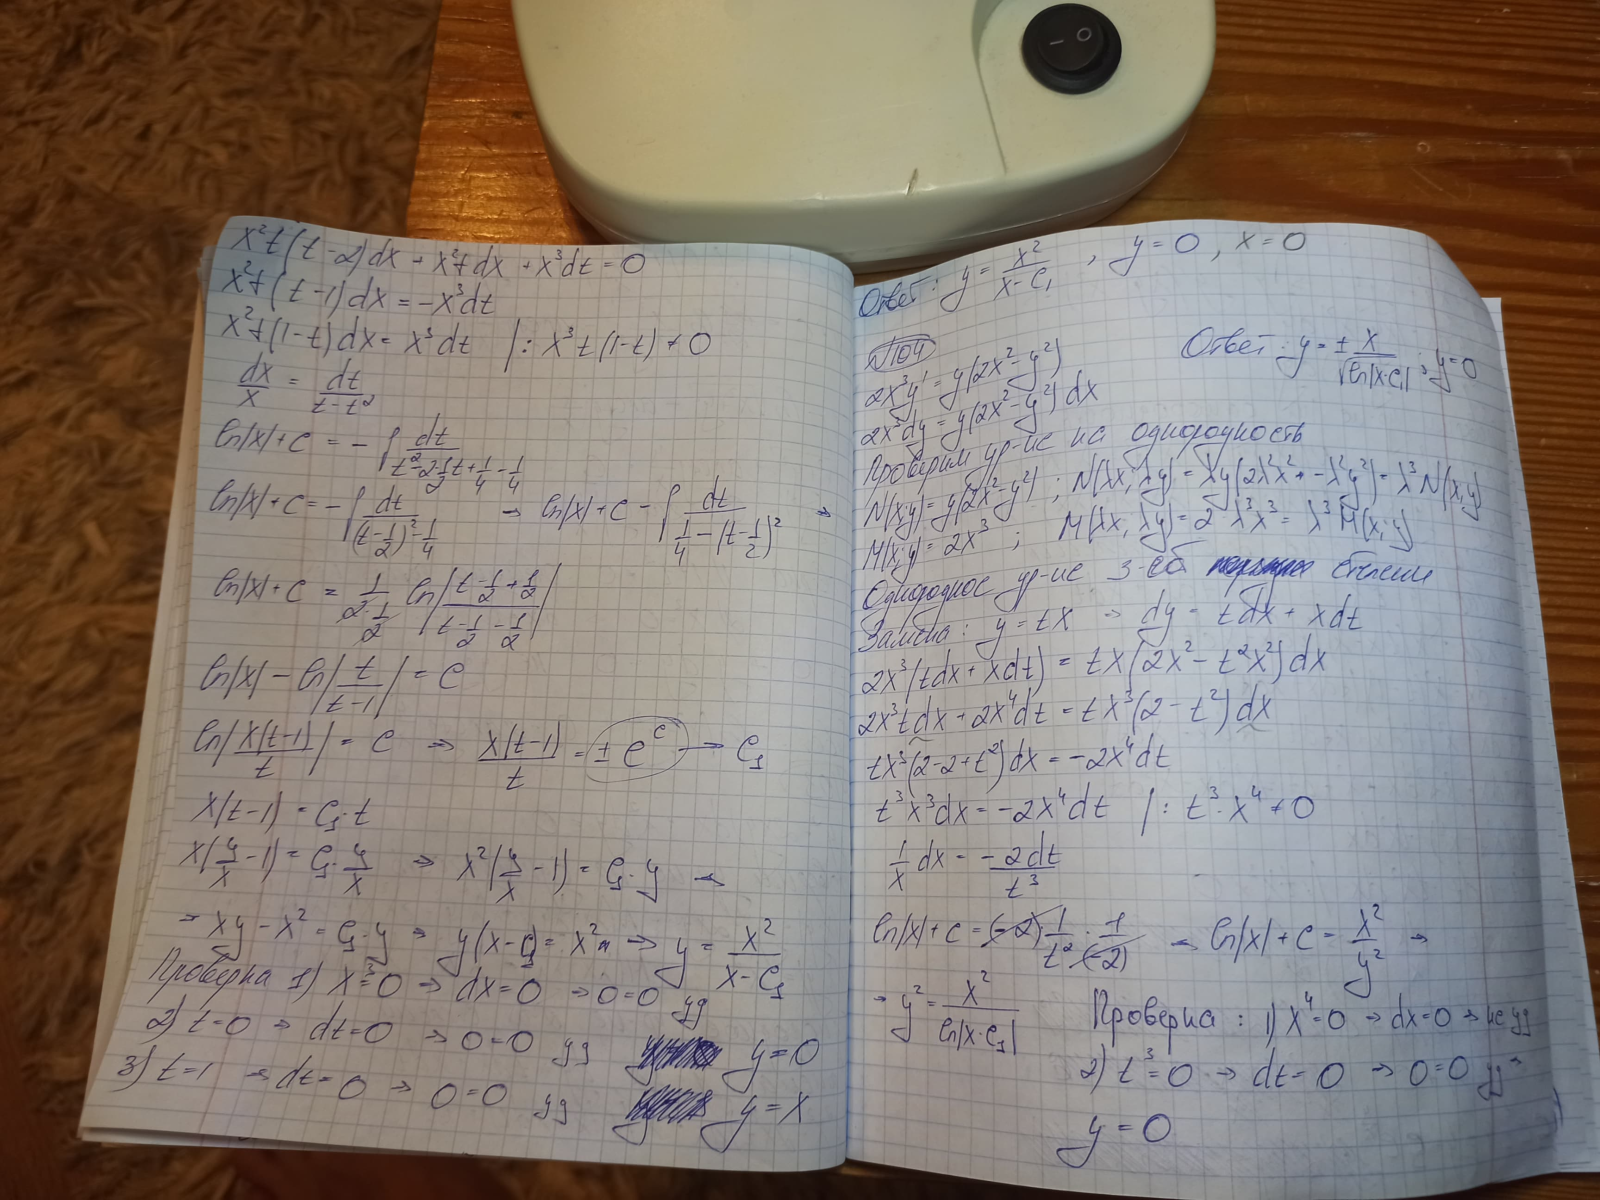 x²t(t-2)dx + x²t dx + x³dt = 0
x²t(t-1)dx = -x³dt
x²t(1-t)dx = x³dt |: x³t(1-t) ≠ 0
dx/x = dt/(t-t²)
ln|x|+c = -∫ dt/(t²-2·1/2t+1/4-1/4)
ln|x|+c = -∫ dt/((t-1/2)²-1/4) → ln|x|+c = ∫ dt/(1/4-(t-1/2)²) →
ln|x|+c = 1/(2·1/2) ln|(t-1/2+1/2)/(t-1/2-1/2)|
ln|x| - ln|t/(t-1)| = C
ln|x(t-1)/t| = C → x(t-1)/t = ±e^c → C₁
x(t-1) = C₁·t
x(y/x-1) = C₁·y/x → x²(y/x-1) = C₁·y →
→ xy-x² = C₁·y → y(x-C₁) = x² → y = x²/(x-C₁)
Проверка 1) x³=0 → dx=0 → 0=0 уд
2) t=0 → dt=0 → 0=0 уд y=0
3) t=1 → dt=0 → 0=0 уд y=x
Ответ: y = x²/(x-C₁), y=0, x=0
№104
Ответ: y = ± x/√ln|x·C₁|; y=0
2x³y' = y(2x²-y²)
2x³dy = y(2x²-y²)dx
Проверим ур-ие на однородность
N(x;y) = y(2x²-y²); N(λx; λy) = λy(2λ²x²+-λ²y²) = λ³N(x;y)
M(x;y) = 2x³; M(λx, λy) = 2λ³x³ = λ³M(x;y)
Однородное ур-ие 3-ей степени
Замена: y=tx → dy = tdx + xdt
2x³(tdx+xdt) = tx(2x²-t²x²)dx
2x³tdx + 2x⁴dt = tx³(2-t²)dx
tx³(2-2+t²)dx = -2x⁴dt
t³x³dx = -2x⁴dt |: t³·x⁴ ≠ 0
1/x dx = -2dt/t³
ln|x|+c = (-2) 1/t²·1/(-2) → ln|x|+c = x²/y² →
→ y² = x²/ln|x·C₁| Проверка: 1) x⁴=0 → dx=0 → не уд
2) t³=0 → dt=0 → 0=0 уд →
y=0